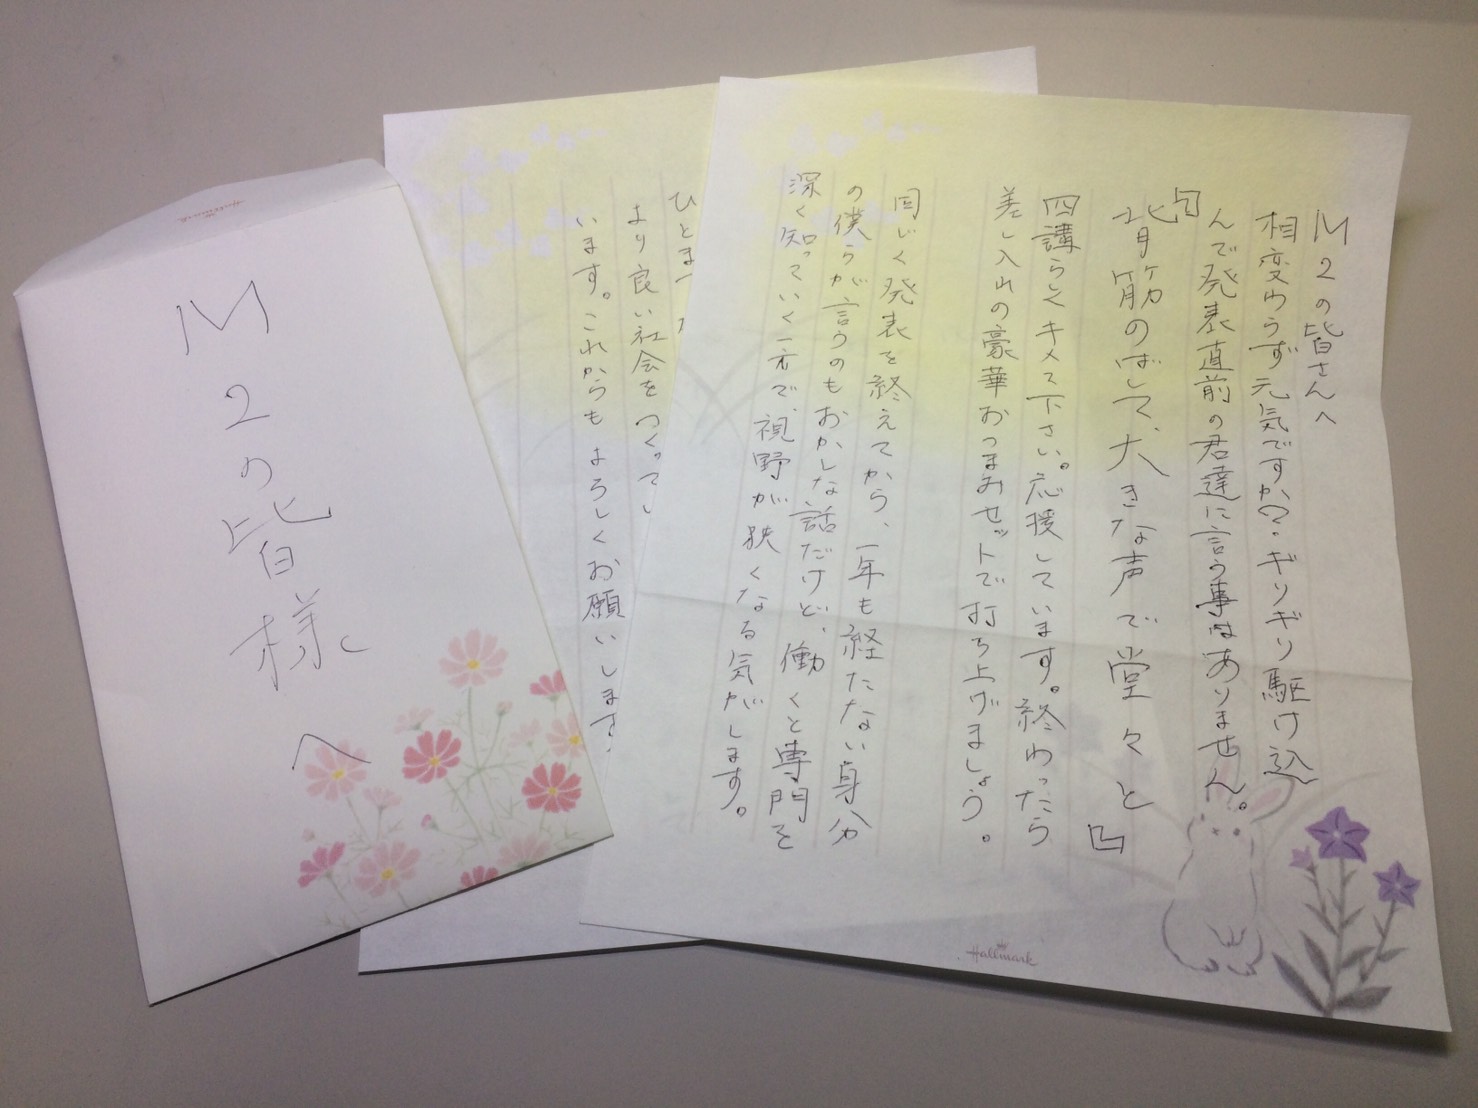 M2の皆様へ
Hallmark
M2の皆さんへ
相変わらず元気ですか?ギリギリ駆け込
んで発表直前の君達に言う事はありません。
『背筋のばして、大きな声で堂々と』
四講らしくキメて下さい。応援しています。終わったら
差し入れの豪華おつまみセットで打ち上げましょう。
同じく発表を終えてから、一年も経たない身分
の僕らが言うのもおかしな話だけど、働くと専門を
深く知っていく一方で、視野が狭くなる気がします。
Hallmark
ひとまず
より良い社会をつくって
います。これからもよろしくお願いします。